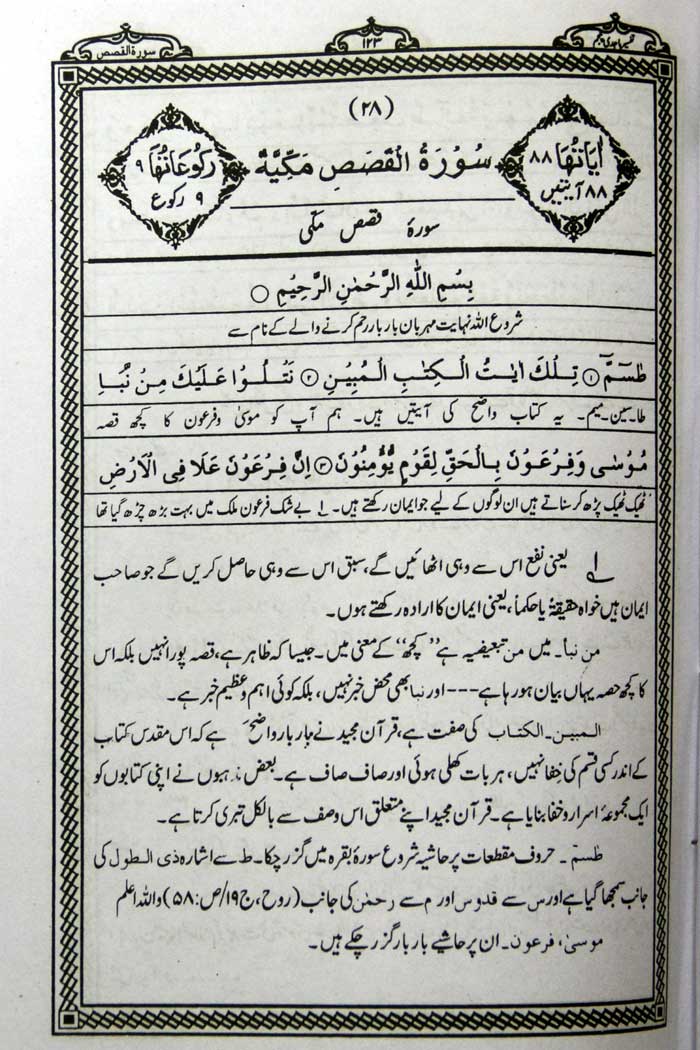 سورة القصص
۱۲۳
(۲۸)
رکوعاتها ۹
۹ رکوع
سُوْرَةُ الْقَصَصِ مَكِّيَّةٌ
اٰيَاتُهَا ۸۸
۸۸ آیتیں
سورۂ قصص مکّی
بِسْمِ اللّٰهِ الرَّحْمٰنِ الرَّحِيْمِ ○
شروع اللہ نہایت مہربان بار بار رحم کرنے والے کے نام سے
طٰسٓمّٓ ۱ تِلْكَ اٰيٰتُ الْكِتٰبِ الْمُبِيْنِ ۲ نَتْلُوْا عَلَيْكَ مِنْ نَّبَاِ
طا۔سین۔میم۔ یہ کتاب واضح کی آیتیں ہیں۔ ہم آپ کو موسیٰ وفرعون کا کچھ قصہ
مُوْسٰى وَفِرْعَوْنَ بِالْحَقِّ لِقَوْمٍ يُّؤْمِنُوْنَ ۳ اِنَّ فِرْعَوْنَ عَلَا فِى الْاَرْضِ
ٹھیک ٹھیک پڑھ کر سناتے ہیں ان لوگوں کے لیے جو ایمان رکھتے ہیں۔ ۱ بے شک فرعون ملک میں بہت بڑھ چڑھ گیا تھا
۱ یعنی نفع اس سے وہی اٹھائیں گے، سبق اس سے وہی حاصل کریں گے جو صاحب
ایمان ہیں خواہ حقیقۃً یا حکماً، یعنی ایمان کا ارادہ رکھتے ہوں۔
من نبأ۔ میں من تبعیضیہ ہے ”کچھ“ کے معنی میں۔ جیسا کہ ظاہر ہے، قصہ پورا نہیں بلکہ اس
کا کچھ حصہ یہاں بیان ہو رہا ہے --- اور نبأ بھی محض خبر نہیں، بلکہ کوئی اہم وعظیم خبر ہے۔
المبین۔ الکتاب کی صفت ہے، قرآن مجید نے بار بار واضح ہے کہ اس مقدس کتاب
کے اندر کسی قسم کی خفا نہیں، ہر بات کھلی ہوئی اور صاف صاف ہے۔ بعض مذہبوں نے اپنی کتابوں کو
ایک مجموعۂ اسرار وخفا بنایا ہے۔ قرآن مجید اپنے متعلق اس وصف سے بالکل تبری کرتا ہے۔
طسم۔ حروف مقطعات پر حاشیہ شروع سورۂ بقرہ میں گزر چکا۔ ط سے اشارہ ذی الطول کی
جانب سمجھا گیا ہے اور س سے قدوس اور م سے رحمن کی جانب (روح، ج۱۹/ص:۵۸) واللہ اعلم
موسیٰ، فرعون۔ ان پر حاشیے بار بار گزر چکے ہیں۔